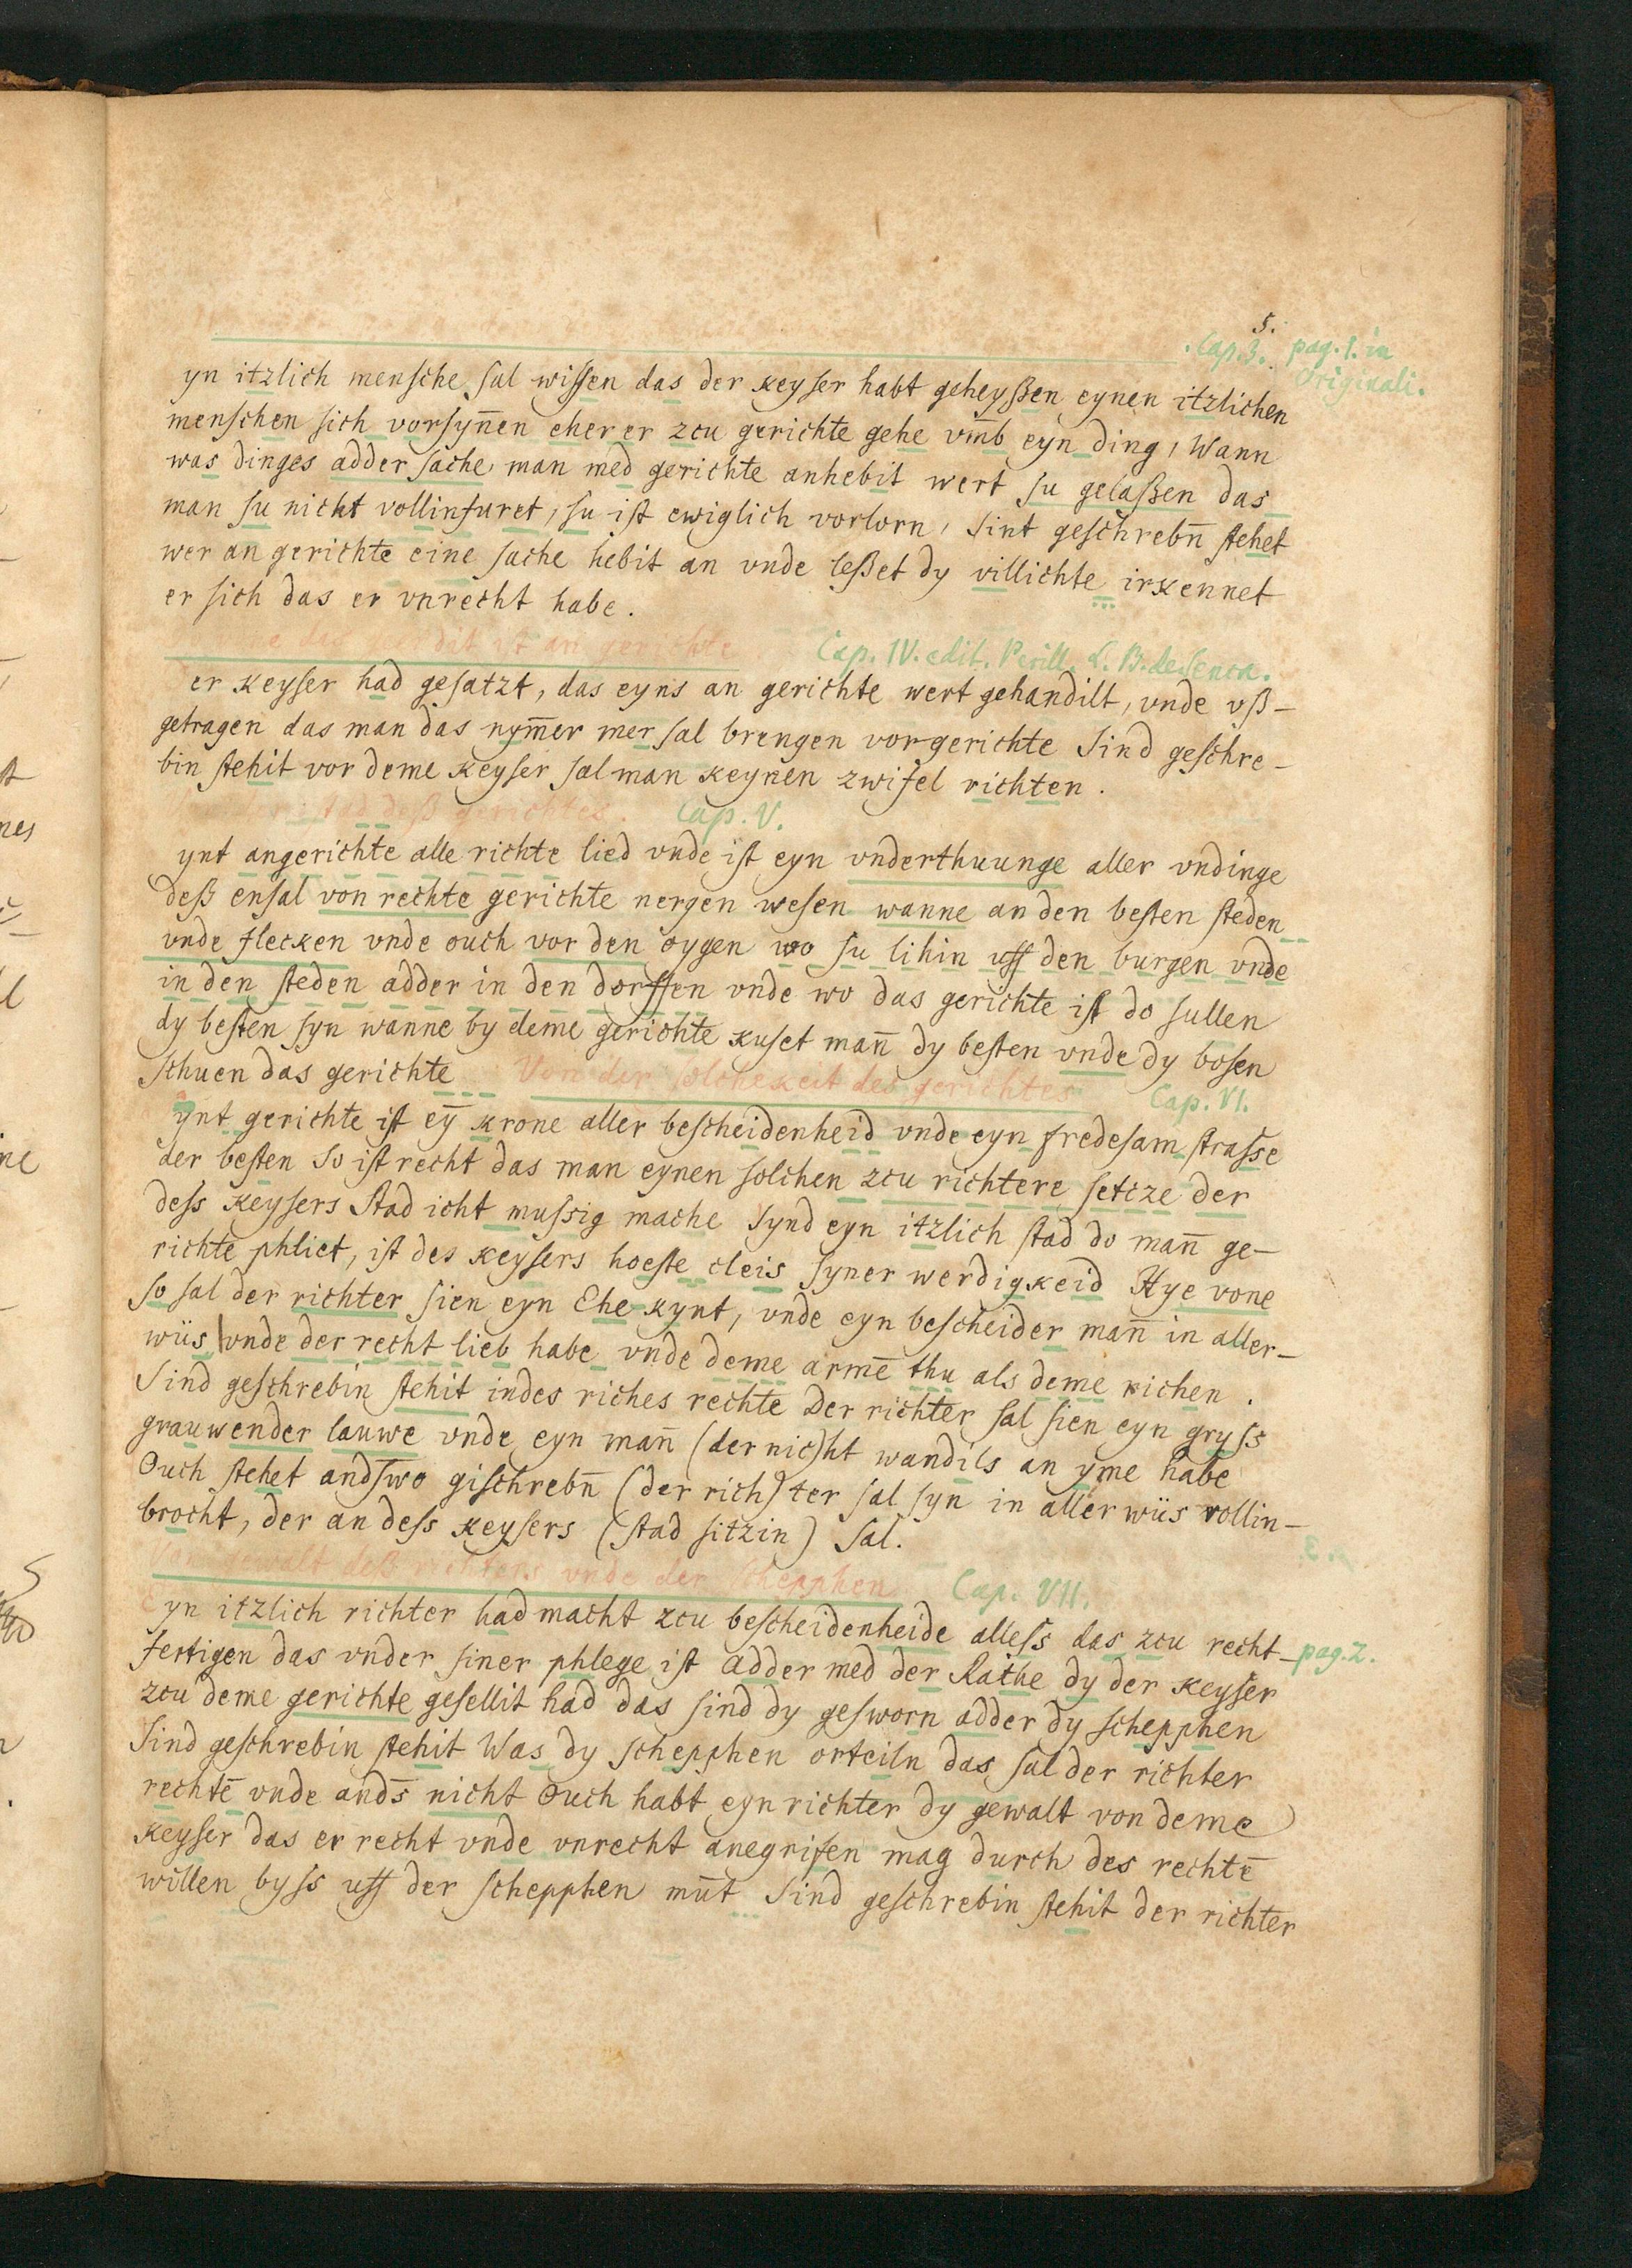 5.
Cap. 3. pag. 1. in
Originali.
yn itzlich mensche sal wissen das der keyser habt geheyßen eynen itzlichen
menschen sich vorsyn̄en eher er zcu gerichte gehe vm̄b eyn ding, Wann
was dinges adder sache man med gerichte anhebit wert su gelaßen das
man su nicht vollinfuret, su ist ewiglich vorlorn, Sint geschrebn̄ stehet
wer an gerichte eine sache hebit an vnde leßet dy villichte irkennet
er sich das er vnrecht habe.
ist an gerichte Cap. IV. edit. Perill. L. B. de Senck.
er keyser had gesatzt, das eyns an gerichte wert gehandilt, vnde vß-
getragen das man das nym̄er mer sal brengen vor gerichte Sind geschre-
bin stehit vor deme keyser sal man keynen zwifel richten.
deß gerichtes. Cap. V.
ynt angerichte alle richte lied vnde ist eyn vnderthuunge aller vndinge
deß ensal von rechte gerichte nergen wesen wanne an den besten steden
vnde flecken vnde ouch vor den oygen wo su lihin uff den burgen vnde
in den steden adder in den dorffen vnde wo das gerichte ist do sullen
dy besten syn wanne by deme gerichte kuset man̄ dy besten vnde dy bosen
schuen das gerichte Von der solchekeit des gerichtes Cap. VI.
ynt gerichte ist eȳ krone aller bescheidenheid vnde eyn fredesam strasse
der besten So ist recht das man eynen solchen zcu richtere setcze der
dess keysers Stad icht mussig mache Synd eyn itzlich stad do man̄ ge-
richte phliet, ist des keysers hoeste cleis syner werdigkeid Hye vone
so sal der richter sien eyn Ehe kynt, vnde eyn bescheider man̄ in aller-
wiis vnde der recht lieb habe vnde deme arme̅ thu als deme richen.
Sind geschrebin stehit indes riches rechte Der richter sal sien eyn gryss
grauwender lauwe vnde eyn man̄ (der nic)ht wandils an yme habe
Ouch stehet andswo gischrebn̄ (der rich)ter sal syn in aller wiis vollin-
brocht, der an dess keysers (stad sitzin) sal.
Von gewalt deß richters vnde der schepphen Cap. VII.
Eyn itzlich richter had macht zcu bescheidenheide alless das zcu recht- pag. 2.
fertigen das vnder siner phlege ist Adder med der Rathe dy der keyser
zcu deme gerichte gesellit had das sind dy gesworn adder dy schepphen
Sind geschrebin stehit Was dy schepphen orteiln das sal der richter
rechte̅ vnde ands̄ nicht Ouch habt eyn richter dy gewalt von deme
keyser das er recht vnde vnrecht anegrifen mag durch des rechte̅
willen byss uff der schepphen mūt Sind geschrebin stehit der richter